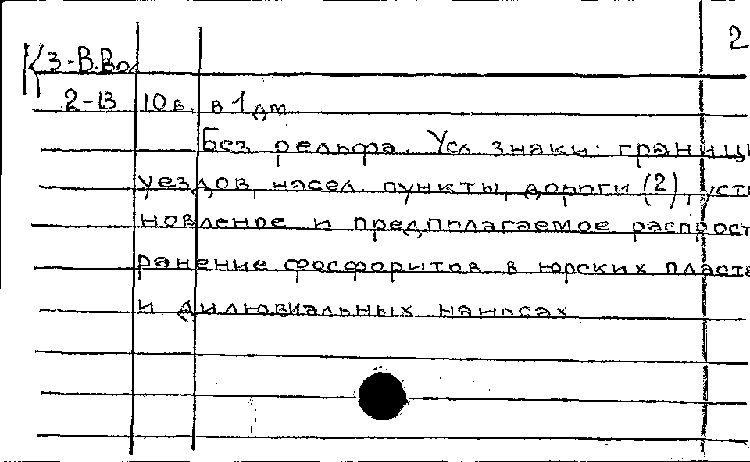 2
К 3-В.Во
2-13 10в. в 1 дм
Без рельфа. Усл. знаки: границы
уездов, насел. пункты, дороги (2), уста
новление и предполагаемое распрост
ранение фосфоритов в юрских пласта
и дилювиальных наносах